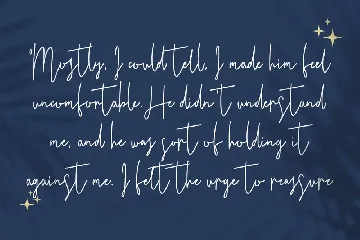 "Mostly, I could tell, I made him feel
uncomfortable. He didn't understand
me, and he was sort of holding it
against me. I felt the urge to reassure